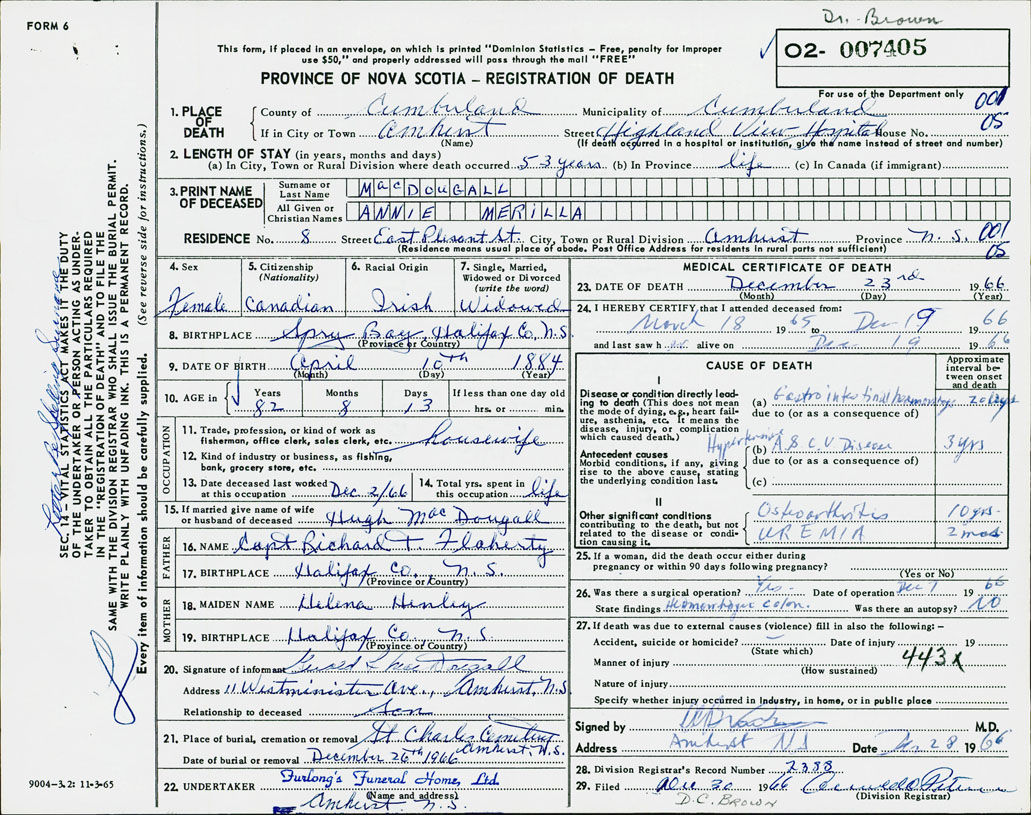 FORM 6
Dr. Brown
This form, if placed in an envelope, on which is printed "Dominion Statistics – Free, penalty for improper
use $50," and properly addressed will pass through the mail "FREE"
02- 007405
PROVINCE OF NOVA SCOTIA – REGISTRATION OF DEATH
For use of the Department only
001
05
1. PLACE OF DEATH
County of Cumberland Municipality of Cumberland
If in City or Town Amherst Street Highland View Hospital House No.
(Name) (If death occurred in a hospital or institution, give the name instead of street and number)
2. LENGTH OF STAY (in years, months and days)
(a) In City, Town or Rural Division where death occurred 53 years (b) In Province life (c) In Canada (if immigrant)
3. PRINT NAME OF DECEASED
Surname or Last Name MacDOUGALL
All Given or Christian Names ANNIE MERILLA
RESIDENCE No. 8 Street East Plesant St. City, Town or Rural Division Amherst Province N.S. 001
(Residence means usual place of abode. Post Office Address for residents in rural parts not sufficient) 05
4. Sex Female
5. Citizenship (Nationality) Canadian
6. Racial Origin Irish
7. Single, Married, Widowed or Divorced (write the word) Widowed
8. BIRTHPLACE Spry Bay, Halifax Co, N.S.
(Province or Country)
9. DATE OF BIRTH April 10th 1884
(Month) (Day) (Year)
10. AGE in Years 82 Months 8 Days 13 If less than one day old hrs. or min.
OCCUPATION
11. Trade, profession, or kind of work as fisherman, office clerk, sales clerk, etc. housewife
12. Kind of industry or business, as fishing, bank, grocery store, etc.
13. Date deceased last worked at this occupation Dec 2/66
14. Total yrs. spent in this occupation life
15. If married give name of wife or husband of deceased Hugh MacDougall
FATHER
16. NAME Capt Richard T Flaherty
17. BIRTHPLACE Halifax Co, N.S.
(Province or Country)
MOTHER
18. MAIDEN NAME Helena Henley
19. BIRTHPLACE Halifax Co N.S.
(Province or Country)
20. Signature of informant
Address 11 Westminister Ave., Amherst, N.S.
Relationship to deceased Son
21. Place of burial, cremation or removal St Charles Cemetery Amherst, N.S.
Date of burial or removal December 26th 1966
22. UNDERTAKER Furlong's Funeral Home, Ltd.
(Name and address)
Amherst N.S.
MEDICAL CERTIFICATE OF DEATH
23. DATE OF DEATH December 23rd 1966
(Month) (Day) (Year)
24. I HEREBY CERTIFY, that I attended deceased from:
March 18 1965 to Dec 19 1966
and last saw h alive on Dec 19 1966
CAUSE OF DEATH
Approximate interval between onset and death
I
Disease or condition directly leading to death (This does not mean the mode of dying, e.g., heart failure, asthenia, etc. It means the disease, injury, or complication which caused death.)
(a) Gastrointestinal hemorrhage 20 days
due to (or as a consequence of)
Antecedent causes
Morbid conditions, if any, giving rise to the above cause, stating the underlying condition last.
(b) Hypertensive A.S.C.V Disease 3 yrs
due to (or as a consequence of)
(c)
II
Other significant conditions contributing to the death, but not related to the disease or condition causing it.
Osteoarthritis 10 yrs
UREMIA 2 mos
25. If a woman, did the death occur either during pregnancy or within 90 days following pregnancy?
(Yes or No)
26. Was there a surgical operation? Yes Date of operation Dec 7 1966
State findings Hemorrhagic colon. Was there an autopsy? NO
27. If death was due to external causes (violence) fill in also the following: –
Accident, suicide or homicide? – Date of injury 19
(State which)
Manner of injury 443X
(How sustained)
Nature of injury
Specify whether injury occurred in industry, in home, or in public place
Signed by M.D.
Address Amherst NS Date 28 1966
28. Division Registrar's Record Number 2388
29. Filed Dec 30 1966
(Division Registrar)
D.C. BROWN
SEC. 14 – VITAL STATISTICS ACT MAKES IT THE DUTY
OF THE UNDERTAKER OR PERSON ACTING AS UNDER-
TAKER TO OBTAIN ALL THE PARTICULARS REQUIRED
IN THE "REGISTRATION OF DEATH" AND TO FILE THE
SAME WITH THE DIVISION REGISTRAR WHO SHALL ISSUE THE BURIAL PERMIT.
WRITE PLAINLY WITH UNFADING INK. THIS IS A PERMANENT RECORD.
Every item of information should be carefully supplied. (See reverse side for instructions.)
9004-3.2: 11-3-65